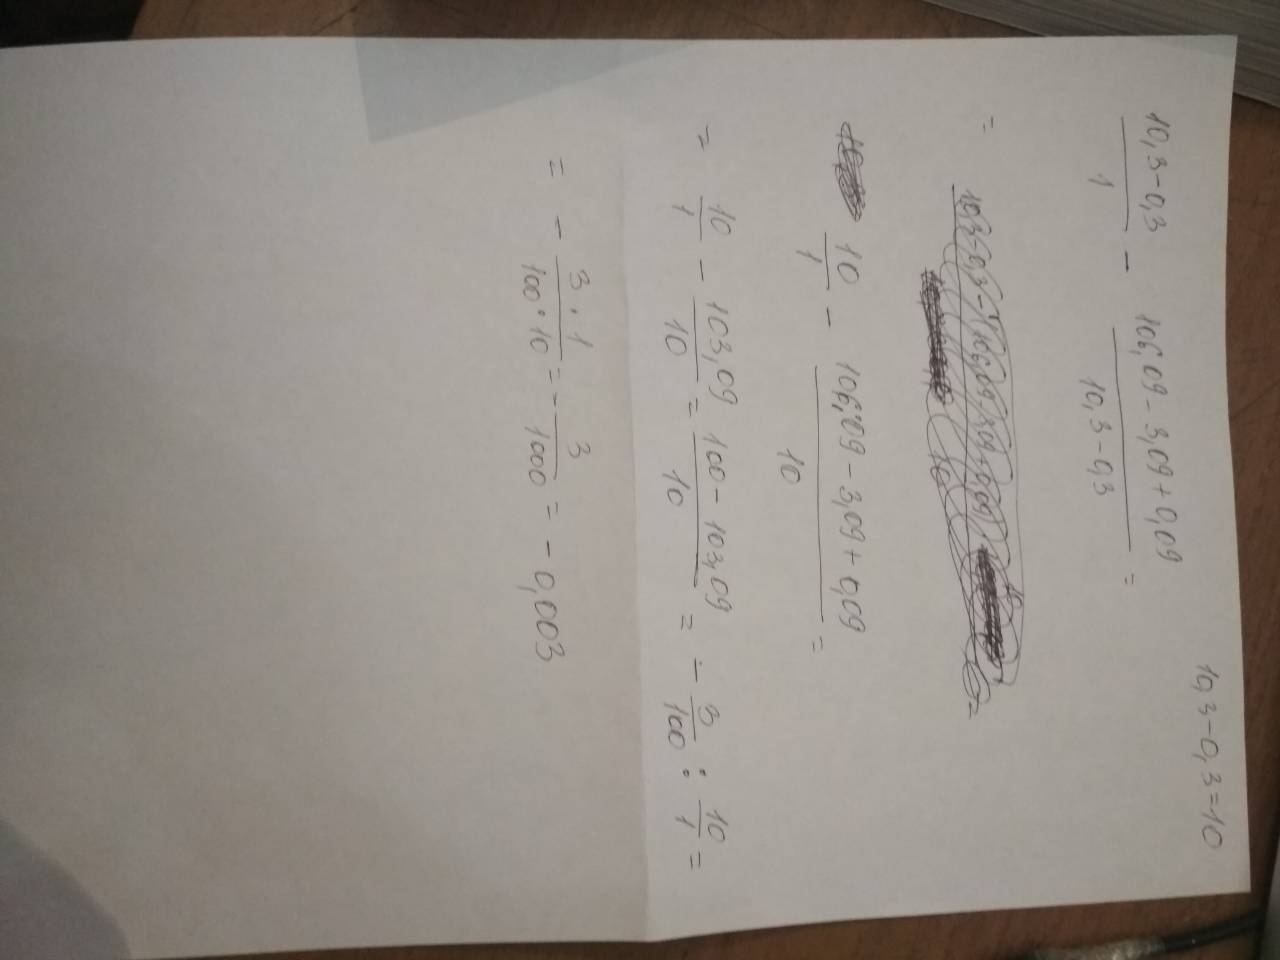 10,3-0,3=10
10,3-0,3 / 1 - 106,09-3,09+0,09 / 10,3-0,3 =
=
10/1 - 106,09-3,09+0,09 / 10 =
= 10/1 - 103,09/10 = 100-103,09 / 10 = - 3/100 : 10/1 =
= - 3·1 / 100·10 = - 3/1000 = -0,003